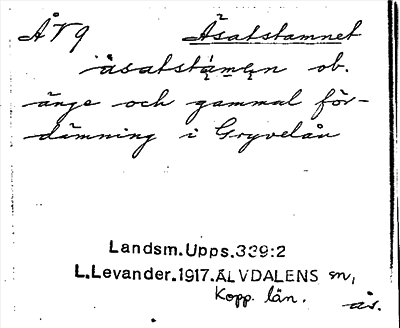 ÅV9 Åsatstamnet
åsatstámen ob.
änge och gammal för-
dämning i Gryvelån
Landsm.Upps.339:2
L.Levander.1917.ÄLVDALENS sn,
Kopp. län.
äs.